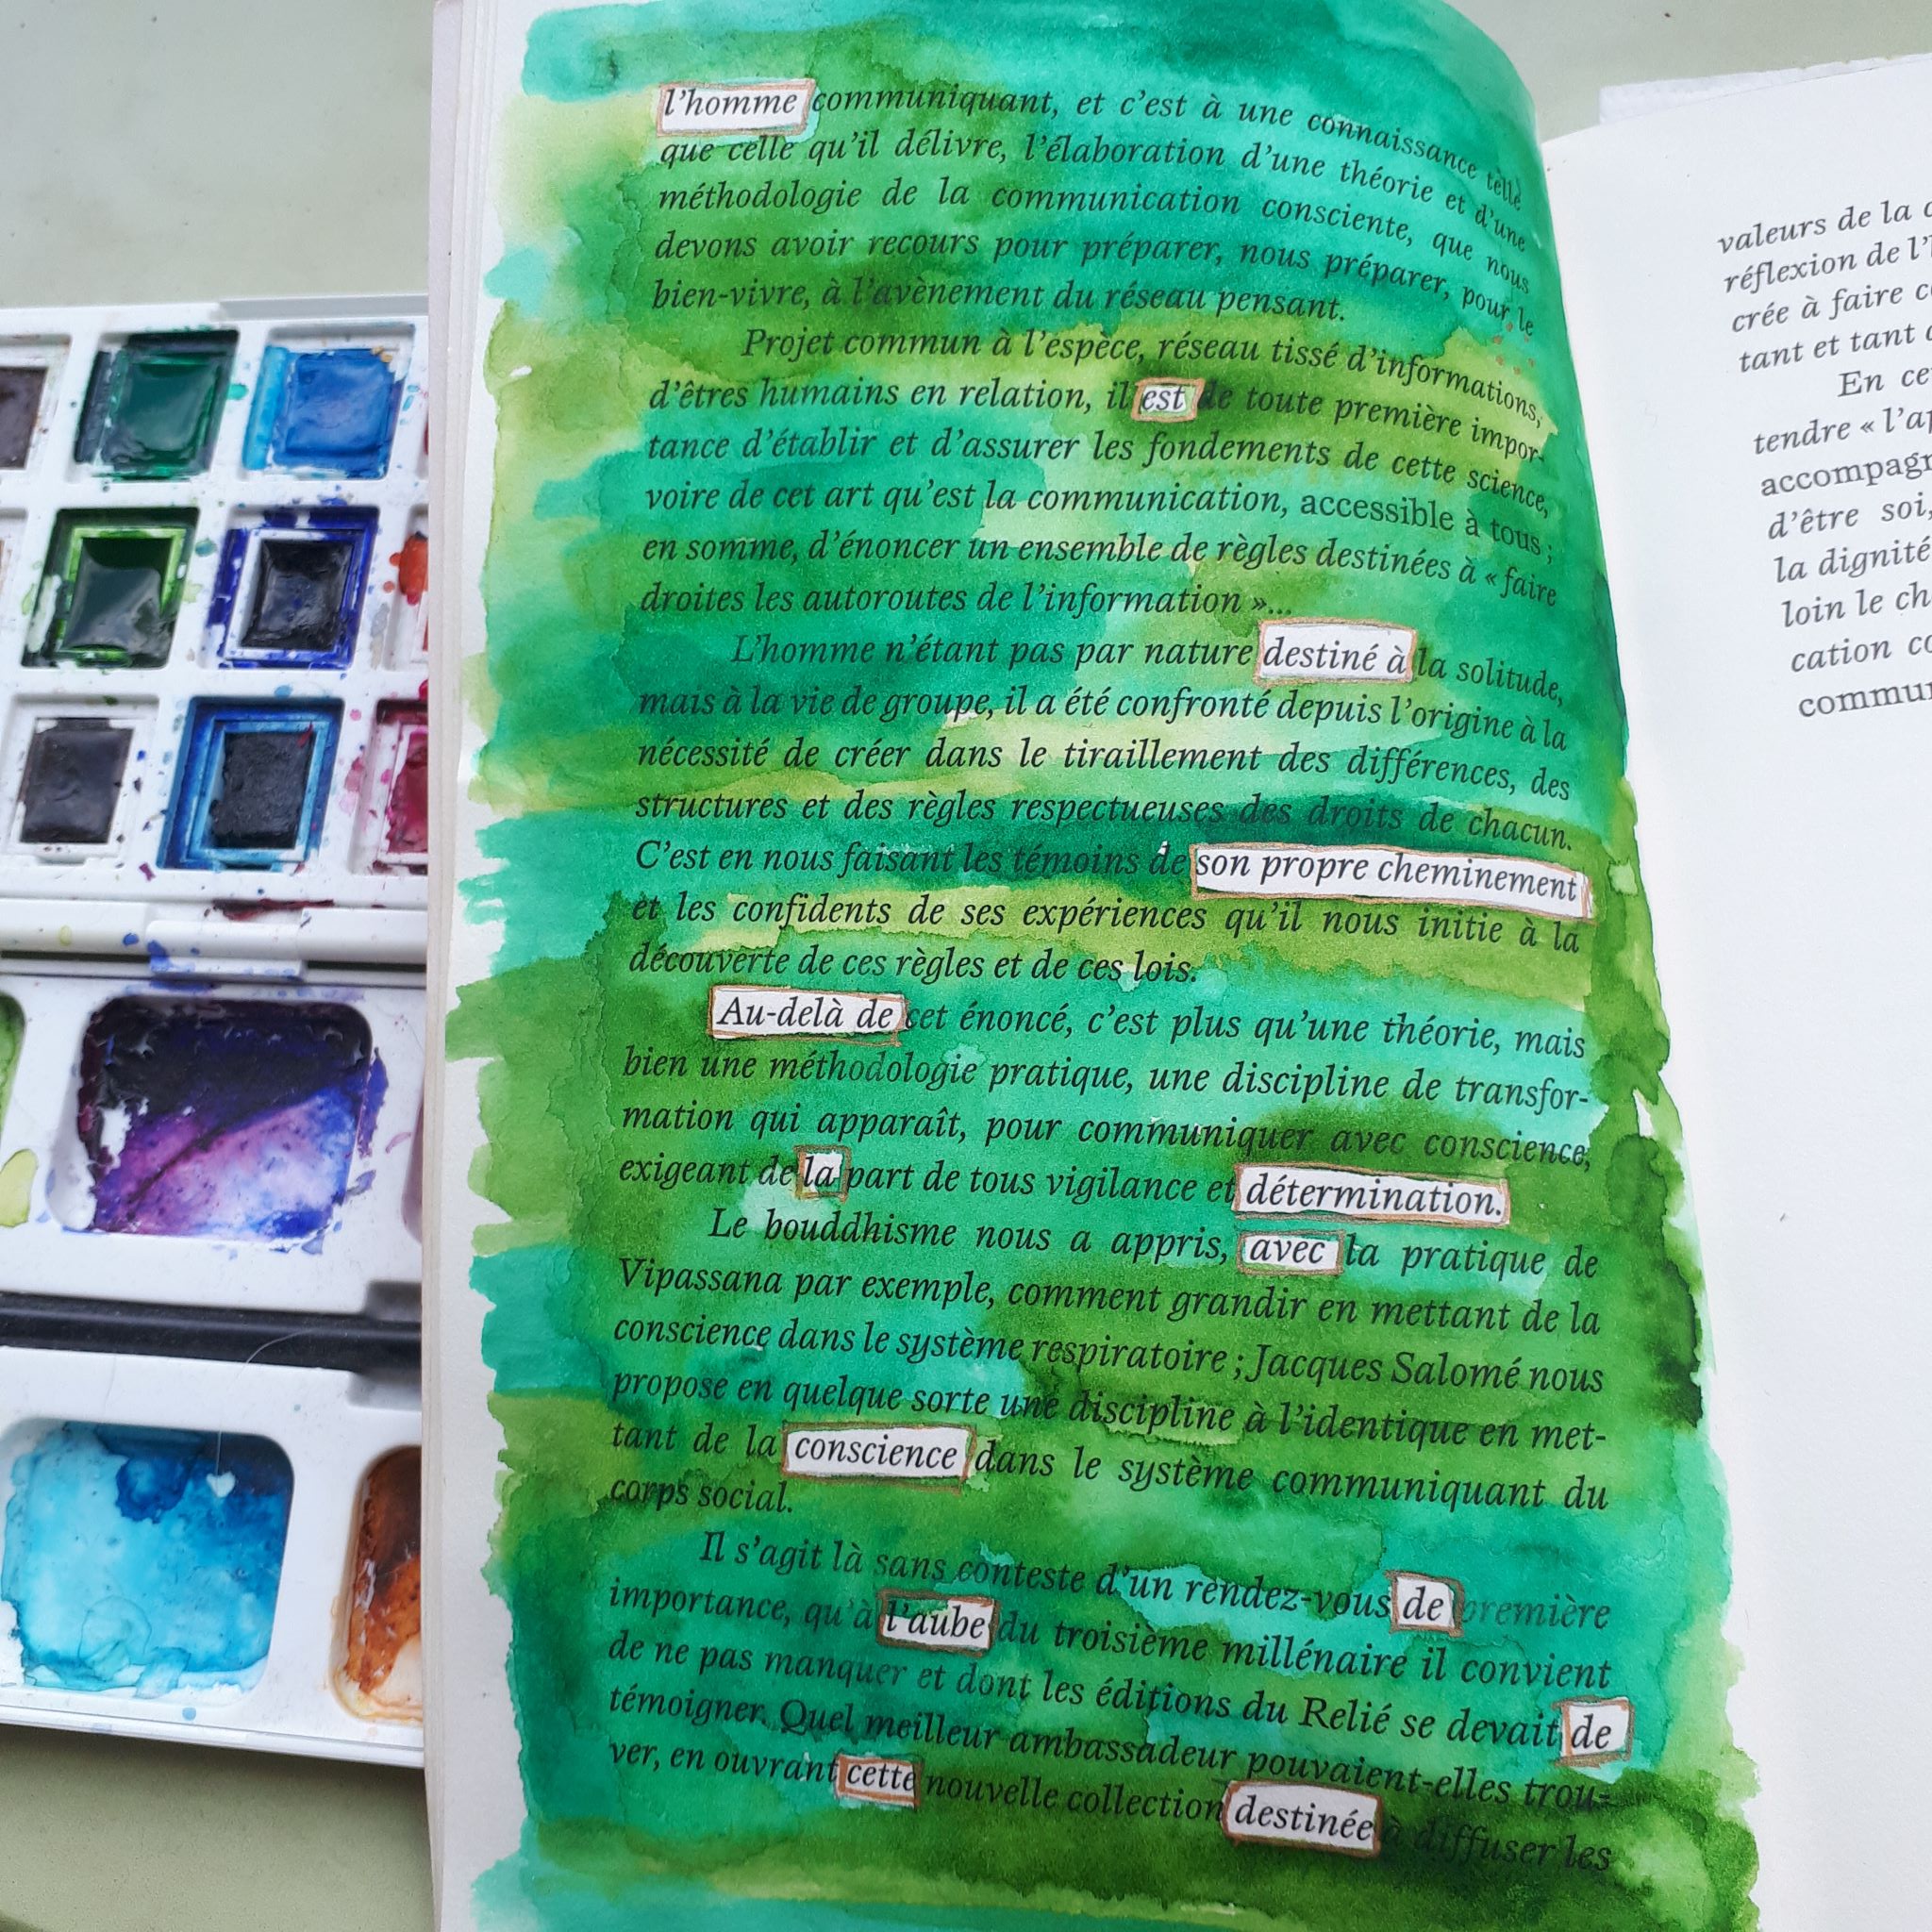 l'homme communiquant, et c'est à une connaissance telle
que celle qu'il délivre, l'élaboration d'une théorie et d'une
méthodologie de la communication consciente, que nous
devons avoir recours pour préparer, nous préparer, pour le
bien-vivre, à l'avènement du réseau pensant.
Projet commun à l'espèce, réseau tissé d'informations,
d'êtres humains en relation, il est de toute première impor-
tance d'établir et d'assurer les fondements de cette science,
voire de cet art qu'est la communication, accessible à tous ;
en somme, d'énoncer un ensemble de règles destinées à « faire
droites les autoroutes de l'information »...
L'homme n'étant pas par nature destiné à la solitude,
mais à la vie de groupe, il a été confronté depuis l'origine à la
nécessité de créer dans le tiraillement des différences, des
structures et des règles respectueuses des droits de chacun.
C'est en nous faisant les témoins de son propre cheminement
et les confidents de ses expériences qu'il nous initie à la
découverte de ces règles et de ces lois.
Au-delà de cet énoncé, c'est plus qu'une théorie, mais
bien une méthodologie pratique, une discipline de transfor-
mation qui apparaît, pour communiquer avec conscience,
exigeant de la part de tous vigilance et détermination.
Le bouddhisme nous a appris, avec la pratique de
Vipassana par exemple, comment grandir en mettant de la
conscience dans le système respiratoire ; Jacques Salomé nous
propose en quelque sorte une discipline à l'identique en met-
tant de la conscience dans le système communiquant du
corps social.
Il s'agit là sans conteste d'un rendez-vous de première
importance, qu'à l'aube du troisième millénaire il convient
de ne pas manquer et dont les éditions du Relié se devait de
témoigner. Quel meilleur ambassadeur pouvaient-elles trou-
ver, en ouvrant cette nouvelle collection destinée à diffuser les
valeurs de la
réflexion de
crée à faire
tant et tant
En
tendre «
d'être soi,
la dignité
loin le